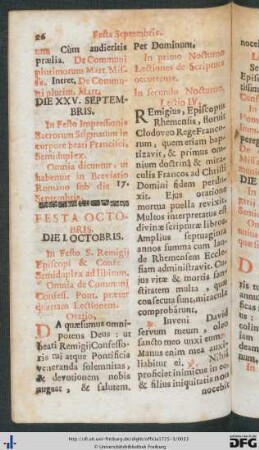 26
Festa Septembris.
tum Cùm audieritis
prælia. De Communi
plurimorum Mart. Missæ
. Intret, De Communi
plurim. Mart.
DIE XXV. SEPTEM-
BRIS.
In Festo Impressionis
Sacrorum Stigmatum in
corpore beati Francisci,
Semiduplex.
Omnia dicuntur, ut
habentur in Breviario
Romano sub die 17.
Septembris.
FESTA OCTO-
BRIS.
DIE I. OCTOBRIS.
In Festo S. Remigij
Episcopi & Confess.
Semiduplex ad libitum.
Omnia de Communi
Confess. Pont. præter
quartam Lectionem.
Oratio.
DA quæsumus omni-
potens Deus: ut
beati Remigij Confesso-
ris tui atque Pontificis
veneranda solemnitas,
& devotionem nobis
augeat, & salutem.
Per Dominum.
In primo Nocturno
Lectiones de Scriptura
occurrente.
In secundo Nocturno,
Lectio IV.
REmigius, Episcopus
Rhemensis, floruit
Clodoveo Rege Franco-
rum, quem etiam bap-
tizavit, & primus om-
nium doctrinâ & mira-
culis Francos ad Christi
Domini fidem perdu-
xit. Ejus oratione
mortua puella revixit.
Multos interpretatus est
divinæ scripturæ libros.
Amplius septuaginta
annos summa cum lau-
de Rhemensem Eccle-
siam administravit. Cu-
jus vitæ & mortis san-
ctitatem multa, quæ
consecuta sunt, miracula
comprobârunt.
℣. Inveni David
servum meum, oleo
sancto meo unxi eum:
Manus enim mea auxi-
liabitur ei. ℣. Nihil
proficiet inimicus in eo,
& filius iniquitatis non
nocebit
http://dl.ub.uni-freiburg.de/diglit/officia1725-3/0033
© Universitätsbibliothek Freiburg
DFG